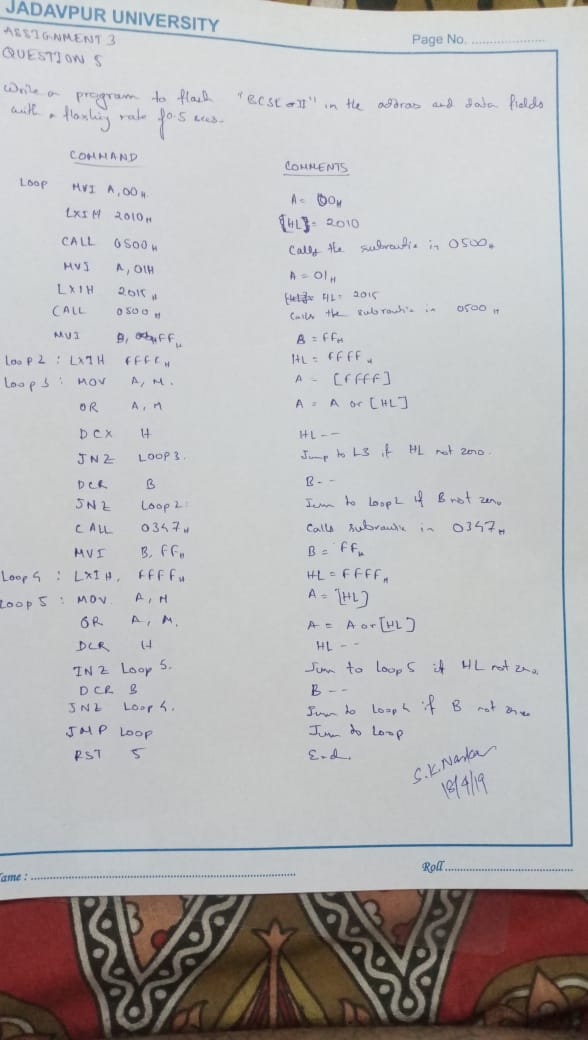 JADAVPUR UNIVERSITY
Page No. ........................
ASSIGNMENT 3
QUESTION 5
Write a program to flash "BCSE-II" in the address and data fields
with a flashing rate of 0.5 secs.
COMMAND COMMENTS
Loop MVI A, 00H A = 00H
LXI H 2010H [HL] = 2010
CALL 0500H Calls the subroutine in 0500H
MVI A, 01H A = 01H
LXI H 2015H HL = 2015
CALL 0500H Calls the subroutine in 0500H
MVI B, FFH B = FFH
Loop 2 : LXI H FFFFH HL = FFFFH
Loop 3 : MOV A, M. A = [FFFF]
OR A, M A = A or [HL]
DCX H HL--
JNZ LOOP3. Jump to L3 if HL not zero.
DCR B B--
JNZ Loop2 Jump to loop2 if B not zero
CALL 0347H Calls subroutine in 0347H
MVI B, FFH B = FFH
Loop 4 : LXI H, FFFFH HL = FFFFH
Loop 5 : MOV A, M A = [HL]
OR A, M. A = A or [HL]
DCR H HL--
JNZ Loop 5. Jump to loop 5 if HL not zero.
DCR B B--
JNZ Loop 4. Jump to loop 4 if B not zero
JMP Loop Jump to Loop
RST 5 End.
S.K. Naskar
18/4/19
Roll ........................
Name : ........................